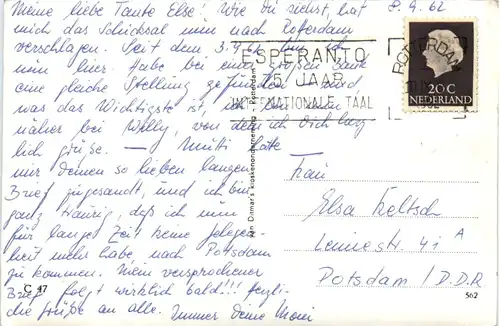 Meine liebe Tante Else! Wie Du siehst, hat
mich das Schicksal nun nach Rotterdam
verschlagen. Seit dem 3.9.62 bin ich
nun hier. Habe bei einer großen Bank
eine gleiche Stellung gefunden und
was das Wichtigste ist,
näher bei Willy, von dem ich Dich herz
lich grüße. — Mutti hatte
mir deinen so lieben langen
Brief zugesandt, und ich bin
ganz traurig, daß ich nun
für lange Zeit keine Gelegen-
heit mehr habe, nach Potsdam
zu kommen. Mein versprochener
Brief folgt wirklich bald!!! Herzli-
che Grüße an alle. Immer deine
C 47
Jan Dirkmar's kioskenonderneming * Rotterdam
8.9.62
ESPERANTO
75 JAAR
INTERNATIONALE TAAL
ROTTERDAM
20 C
NEDERLAND
Frau
Elsa Keltsch
Lennéstr. 41 A
Potsdam / D.D.R
562